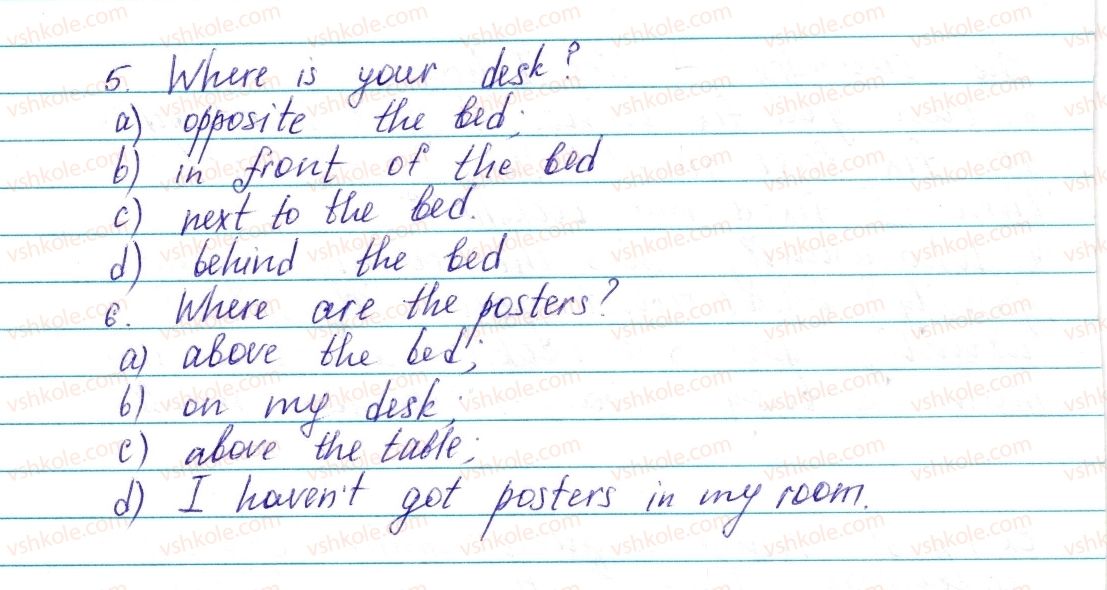 5. Where is your desk?
a) opposite the bed;
b) in front of the bed
c) next to the bed.
d) behind the bed
6. Where are the posters?
a) above the bed;
b) on my desk;
c) above the table;
d) I haven't got posters in my room.